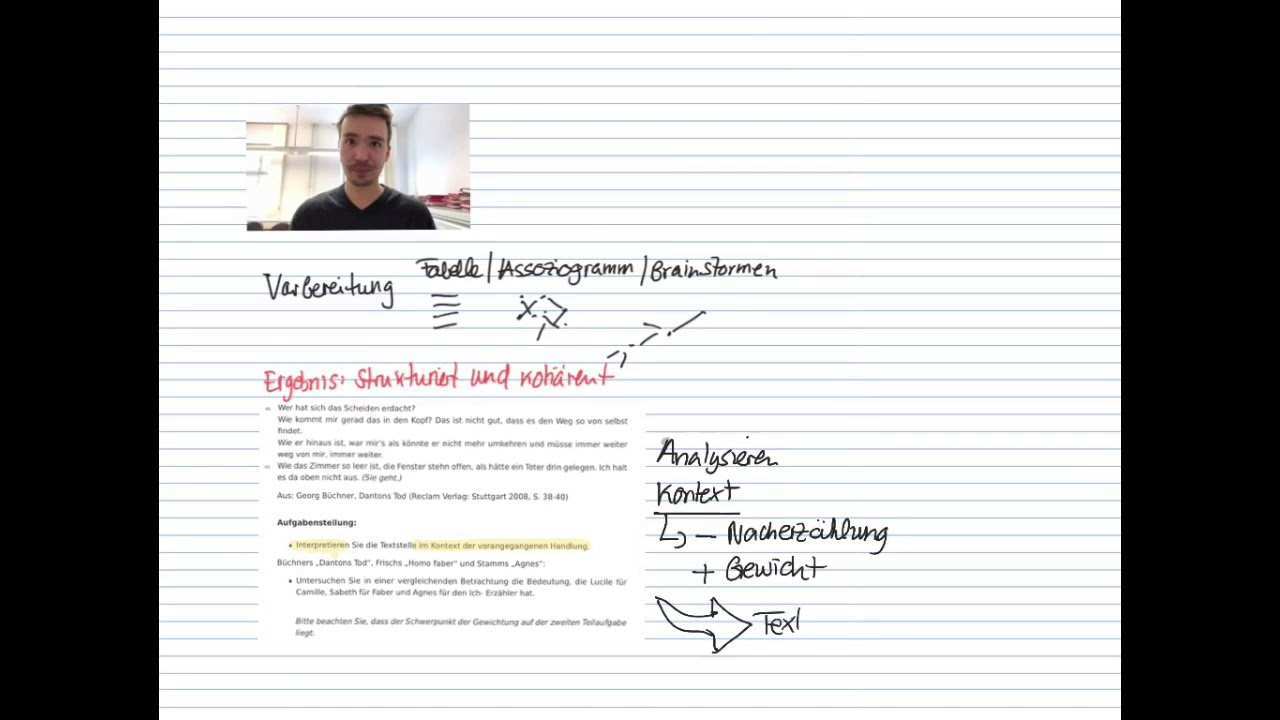 Tabelle / Assoziogramm / Brainstormen
Vorbereitung
Ergebnis: Strukturiert und kohärent
Wer hat sich das Scheiden erdacht?
Wie kommt mir gerad das in den Kopf? Das ist nicht gut, dass es den Weg so von selbst
findet.
Wie er hinaus ist, war mir's als könnte er nicht mehr umkehren und müsse immer weiter
weg von mir, immer weiter.
Wie das Zimmer so leer ist, die Fenster stehn offen, als hätte ein Toter drin gelegen. Ich halt
es da oben nicht aus. (Sie geht.)
Aus: Georg Büchner, Dantons Tod (Reclam Verlag: Stuttgart 2008, S. 38-40)
Aufgabenstellung:
• Interpretieren Sie die Textstelle im Kontext der vorangegangenen Handlung.
Büchners „Dantons Tod“, Frischs „Homo faber“ und Stamms „Agnes“:
• Untersuchen Sie in einer vergleichenden Betrachtung die Bedeutung, die Lucile für
Camille, Sabeth für Faber und Agnes für den Ich- Erzähler hat.
Bitte beachten Sie, dass der Schwerpunkt der Gewichtung auf der zweiten Teilaufgabe
liegt.
Analysieren
Kontext
– Nacherzählung
+ Gewicht
Text